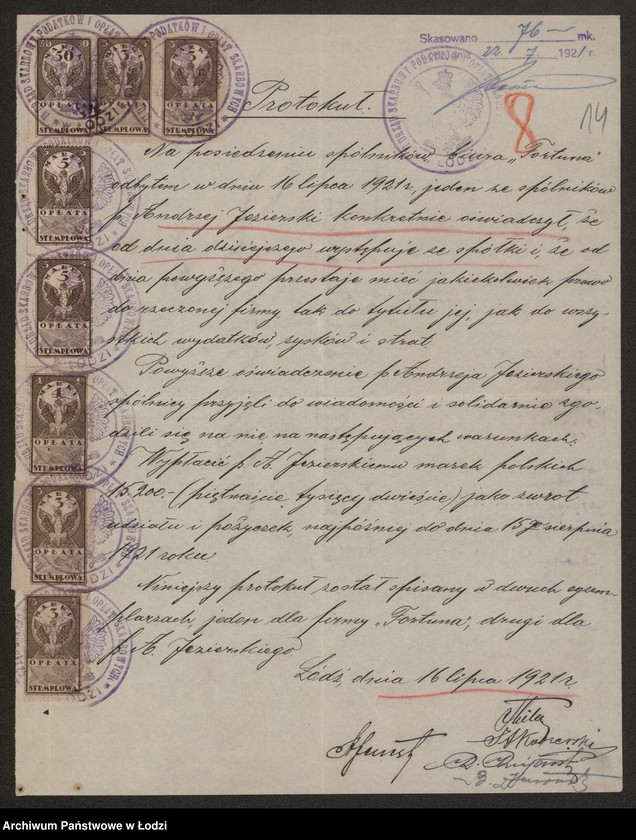 Skasowano 76 mk.
22. 7. 1921 r.
8
14
Protokuł.
Na posiedzeniu spólników biura „Fortuna"
odbytem w dniu 16 lipca 1921 r, jeden ze spólników
p. Andrzej Jezierski konkretnie oświadczył, że
od dnia dzisiejszego występuje ze spółki i, że od
dnia powyższego przestaje mieć jakiekolwiek prawo
do rzeczonej firmy tak do tytułu jej, jak do wszy-
stkich wydatków, zysków i strat.
Powyższe oświadczenie p. Andrzeja Jezierskiego
spólnicy przyjęli do wiadomości i solidarnie zgo-
dzili się na nie na następujących warunkach:
Wypłacić p. A. Jezierskiemu marek polskich
15.200.- (piętnaście tysięcy dwieście) jako zwrot
udziału i pożyczek, najpóźniej do dnia 15go sierpnia
1921 roku.
Niniejszy protokuł został spisany w dwuch egzem-
plarzach, jeden dla firmy „Fortuna", drugi dla
p. A. Jezierskiego
Łódź, dnia 16 lipca 1921 r.
50
OPŁATA
STEMPLOWA
5
OPŁATA
STEMPLOWA
5
OPŁATA
STEMPLOWA
5
OPŁATA
STEMPLOWA
5
OPŁATA
STEMPLOWA
1
OPŁATA
STEMPLOWA
OPŁATA
STEMPLOWA
OPŁATA
STEMPLOWA
Archiwum Państwowe w Łodzi